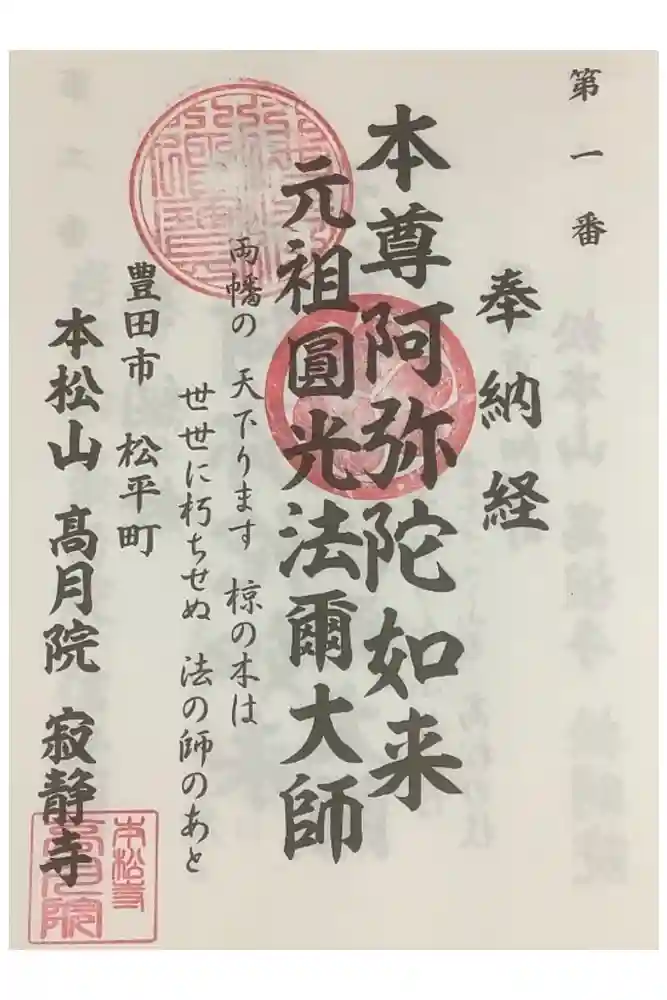 第一番
奉納経
本尊阿弥陀如来
元祖圓光法爾大師
両幡の 天下ります 椋の木は
世世に朽ちせぬ 法の師のあと
豊田市 松平町
本松山 髙月院 寂静寺